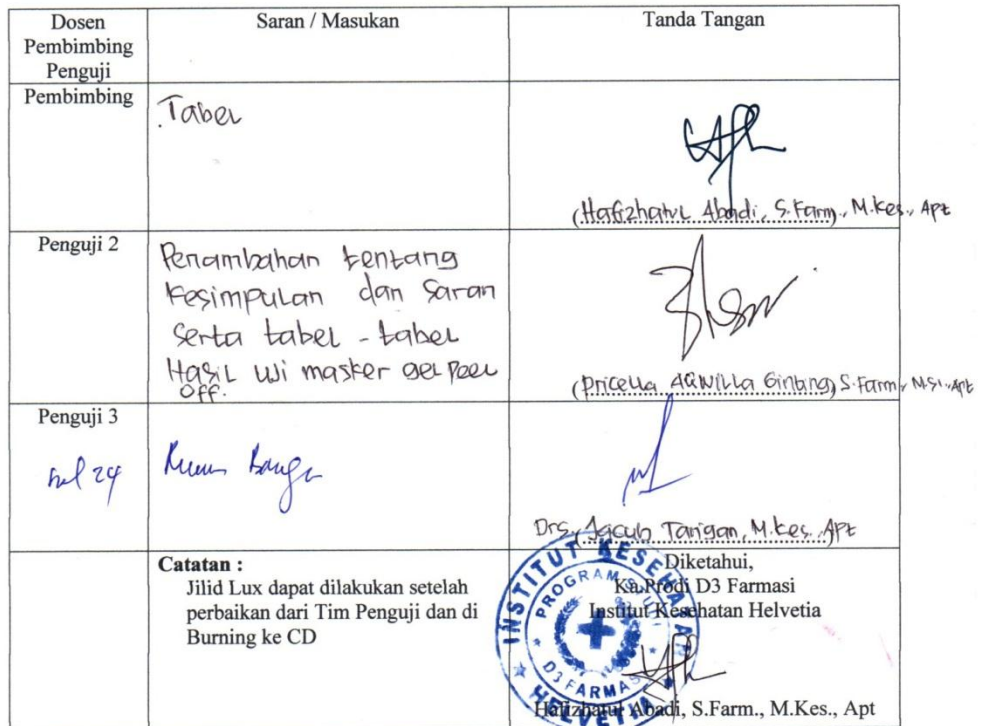 Dosen Pembimbing Penguji
Saran / Masukan
Tanda Tangan
Pembimbing
Tabel
(Hafizhatul Abadi, S.Farm., M.Kes., Apt
Penguji 2
Penambahan tentang
Kesimpulan dan Saran
serta tabel - tabel
Hasil Uji masker gel peel
off.
(Pricella Aqwilla Ginting, S.Farm, M.Si., Apt
Penguji 3
Drs. Jacub Tarigan, M.Kes., Apt
Catatan :
Jilid Lux dapat dilakukan setelah
perbaikan dari Tim Penguji dan di
Burning ke CD
Diketahui,
Ka.Prodi D3 Farmasi
Institut Kesehatan Helvetia
INSTITUT KESEHATAN
PROGRAM STUDI
D3 FARMASI
HELVETIA
Hafizhatul Abadi, S.Farm., M.Kes., Apt